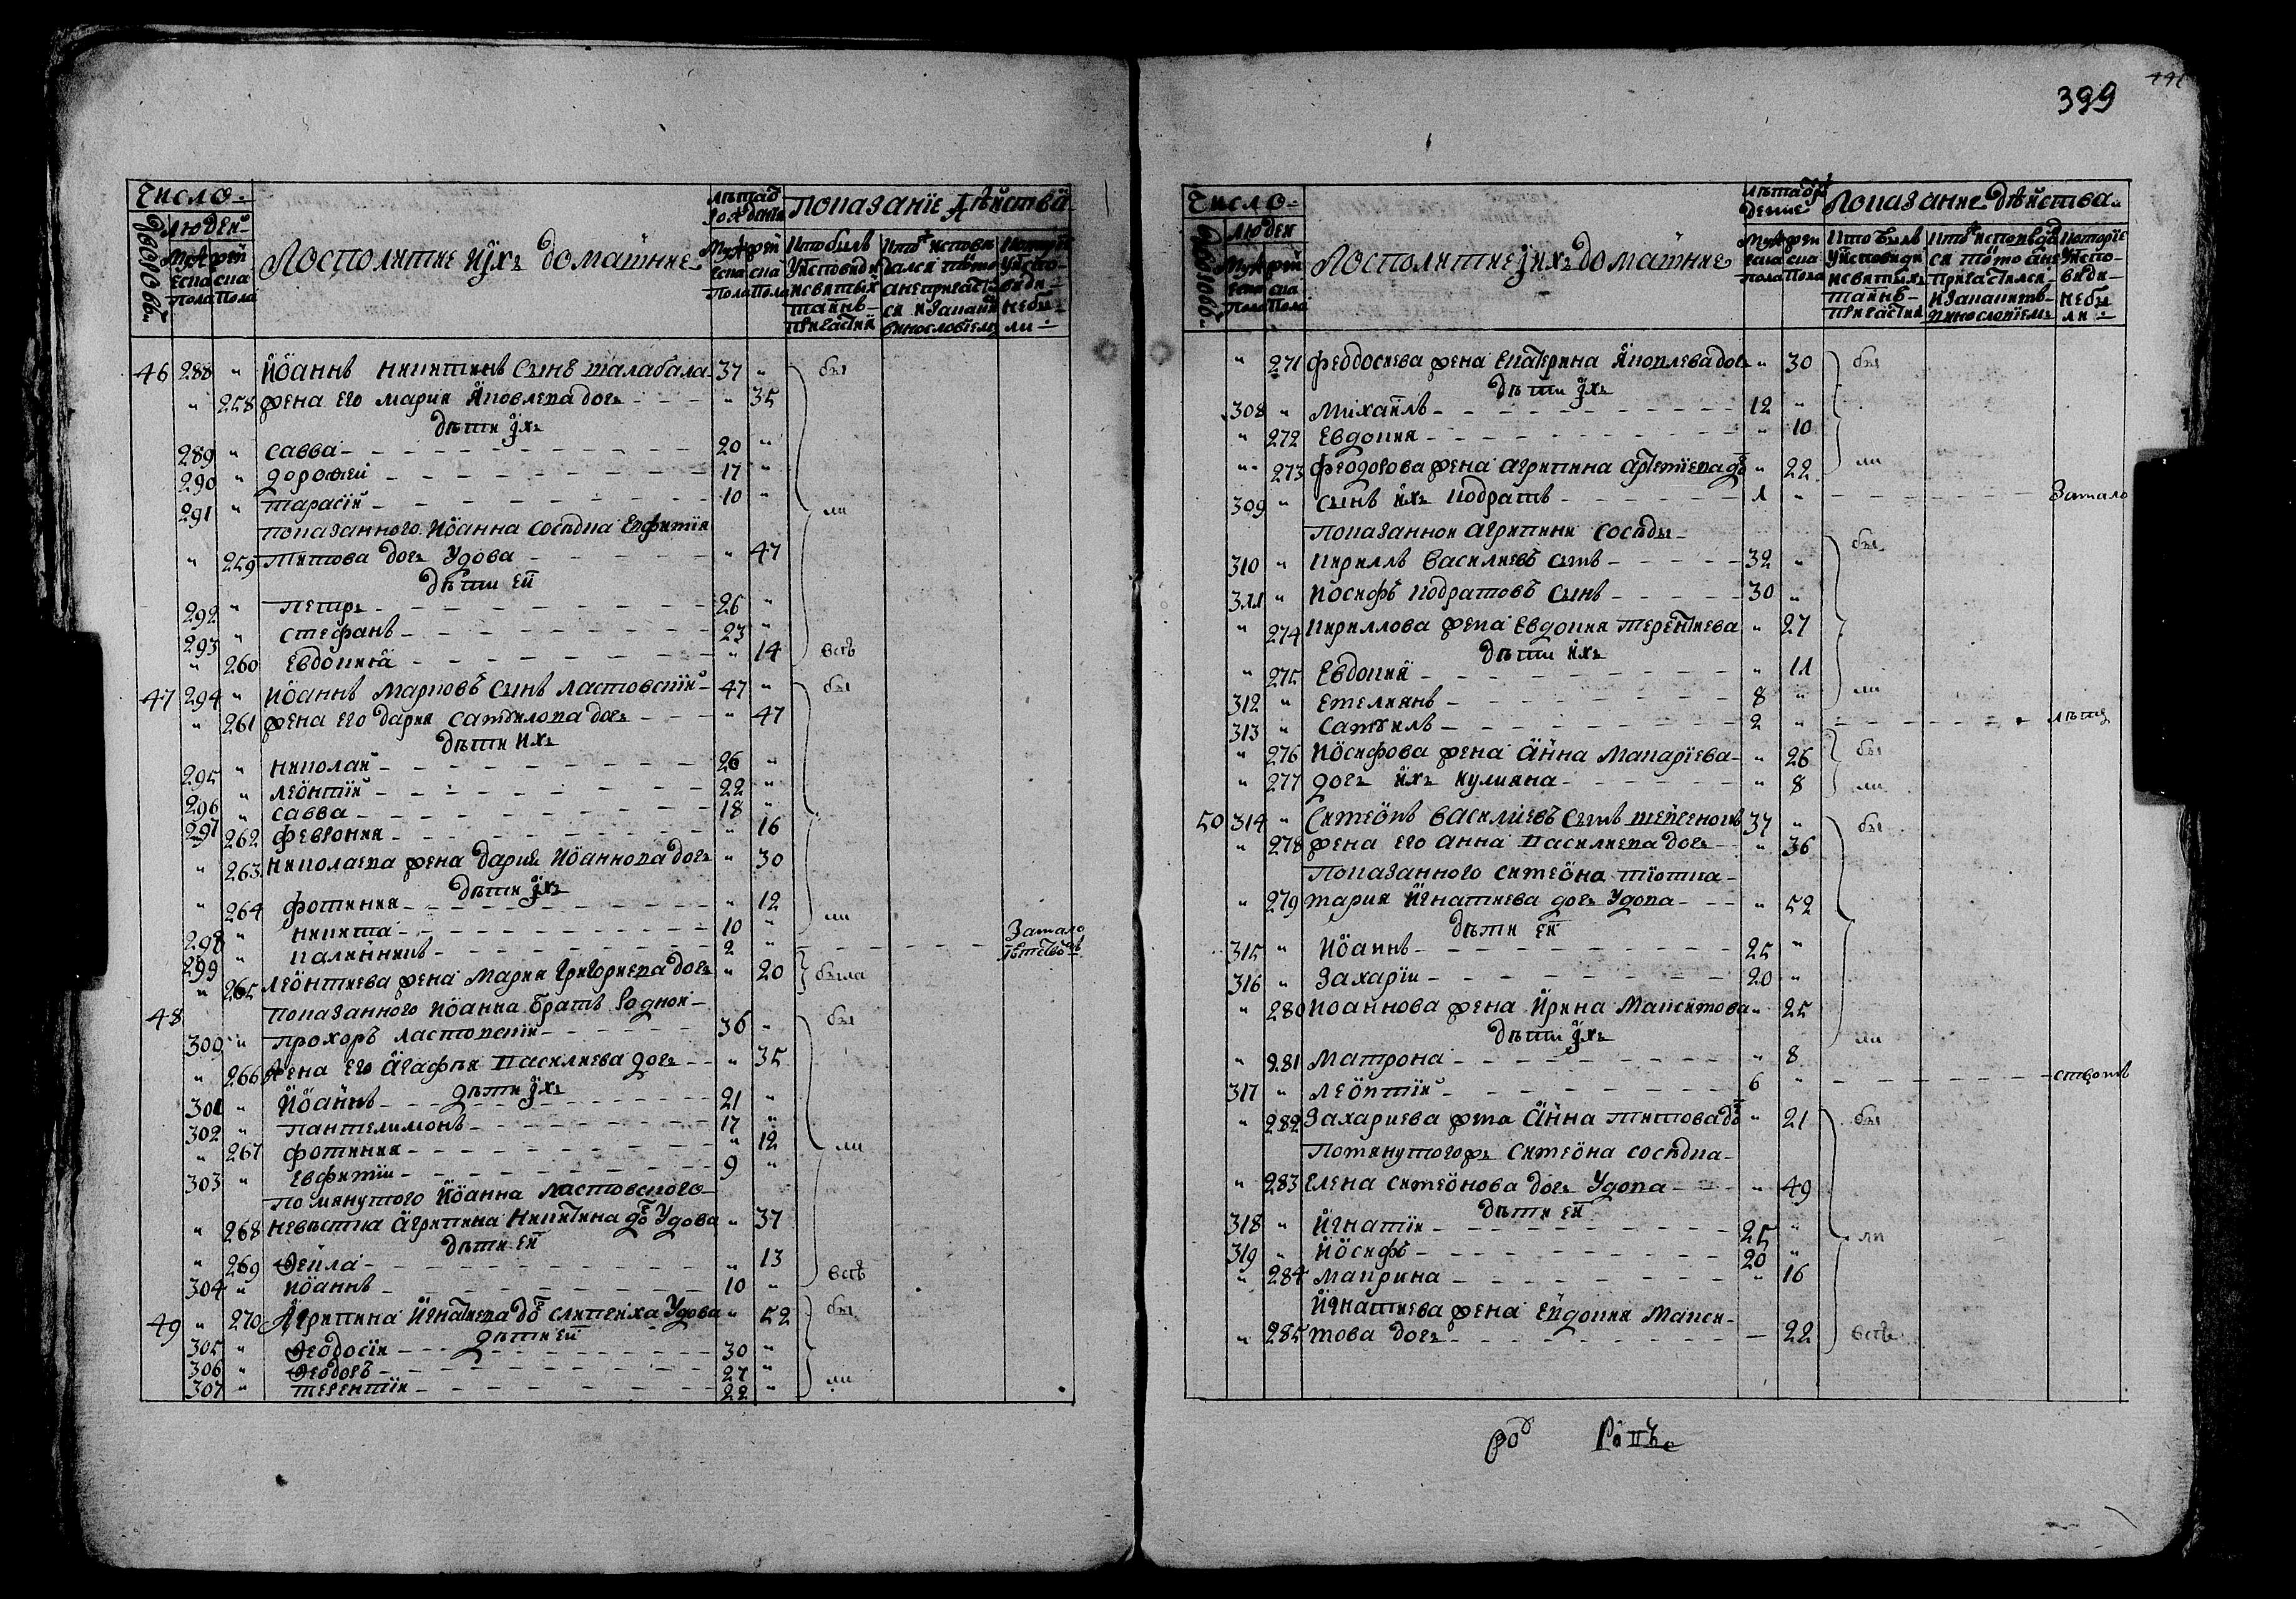 Число
дворовъ
людей
Мужеска пола
женска пола
Посполитие и ихъ домашние
лѣта отъ рождения
Мужеска пола
женска пола
Показание дѣйства
кто былъ у исповѣди и святыхъ таинъ причастия
кто исповѣдался токмо а не причастился и за какимъ винословиемъ
которие у исповѣди не были
46 288 " Иоаннъ Никитинъ синъ Шалабала 37 " бы
" 258 жена его Мариа Яковлева дочь " 35
дѣти ихъ
289 " Савва 20 "
290 " Дорофей 17 "
291 " Тарасий 10 " ли
показанного Иоанна сосѣдка Евфимия
" 259 Титова дочь удова " 47
дѣти ей
292 " Петръ 26 "
293 " Стефанъ 23 "
" 260 Евдокия " 14 всѣ
47 294 " Иоаннъ Марковъ синъ Ластовский 47 " бы
" 261 жена его Дария Самуилова дочь " 47
дѣти ихъ
295 " Николай 26 "
296 " Леонтий 22 "
297 " Савва 18 "
" 262 Феврония " 16
" 263 Николаева жена Дария Иоаннова дочь " 30
дѣти ихъ
" 264 Фотиния " 12 ли
298 " Никита 10 "
299 " 2 " За мало лѣтствомъ
" 265 Леонтиева жена Мария Григориева дочь " 20 была
48 показанного Иоанна братъ родной
300 " Прохоръ Ластовский 36 " бы
" 266 жена его Агафия Василиева дочь " 35
дѣти ихъ
301 " Иоаннъ 21 "
302 " Пантелимонъ 17 "
" 267 Фотиния " 12 ли
303 " Евфимий 9 "
помянутого Иоанна Ластовского
" 268 невѣстка Агрипина Никитина дочь удова " 37
дѣти ей
" 269 Фекла " 13
304 " Иоаннъ 10 " всѣ
49 " 270 Агрипина Игнатиева дочь удова " 52 бы
дѣти ей
305 " Феодосий 30 "
306 " Феодоръ 27 "
307 " Терентий 22 " ли
399
Число
дворовъ
людей
Мужеска пола
женска пола
Посполитие и ихъ домашние
лѣта отъ рождения
Мужеска пола
женска пола
Показание дѣйства
кто былъ у исповѣди и святыхъ таинъ причастия
кто исповѣдался токмо а не причастился и за какимъ винословиемъ
которие у исповѣди не были
" 271 Феодосиева жена Екатерина Яковлева дочь " 30 бы
дѣти ихъ
308 " Михаилъ 12 "
" 272 Евдокия " 10
" 273 Феодорова жена Агрипина Артемиева дочь " 22 ли
309 " синъ ихъ Кодратъ 1 " За мало
показанной Агрипини сосѣды
310 " Кирилъ Василиевъ синъ 32 " бы
311 " Иосифъ Кодратовъ синъ 30 "
" 274 Кириллова жена Евдокия Терентиева " 27
дѣти ихъ
" 275 Евдокия " 11
312 " Емелиянъ 8 " ли
313 " Самуилъ 2 " лѣт
" 276 Иосифова жена Анна Макариева " 26 бы
" 277 дочь ихъ Иулияна " 8 ли
50 314 " Симеонъ Василиевъ синъ 37 " бы
" 278 жена его Анна Василиева дочь " 36
показанного Симеона тютка
" 279 Мария Игнатиева дочь удова " 52
дѣти ей
315 " Иоаннъ 25 "
316 " Захарий 20 "
" 280 Иоаннова жена Ирина Максимова " 25
дѣти ихъ ли
" 281 Матрона " 8
317 " Леонтий 6 " ствомъ
" 282 Захариева жена Анна Титова дочь " 21 бы
Помянутогожъ Симеона сосѣдка
" 283 Елена Симеонова дочь удова " 49
дѣти ей
318 " Игнатий 25 " ли
319 " Иосифъ 20 "
" 284 Маврина " 16
Игнатиева жена Евдокия Макси
" 285 мова дочь 22 всѣ